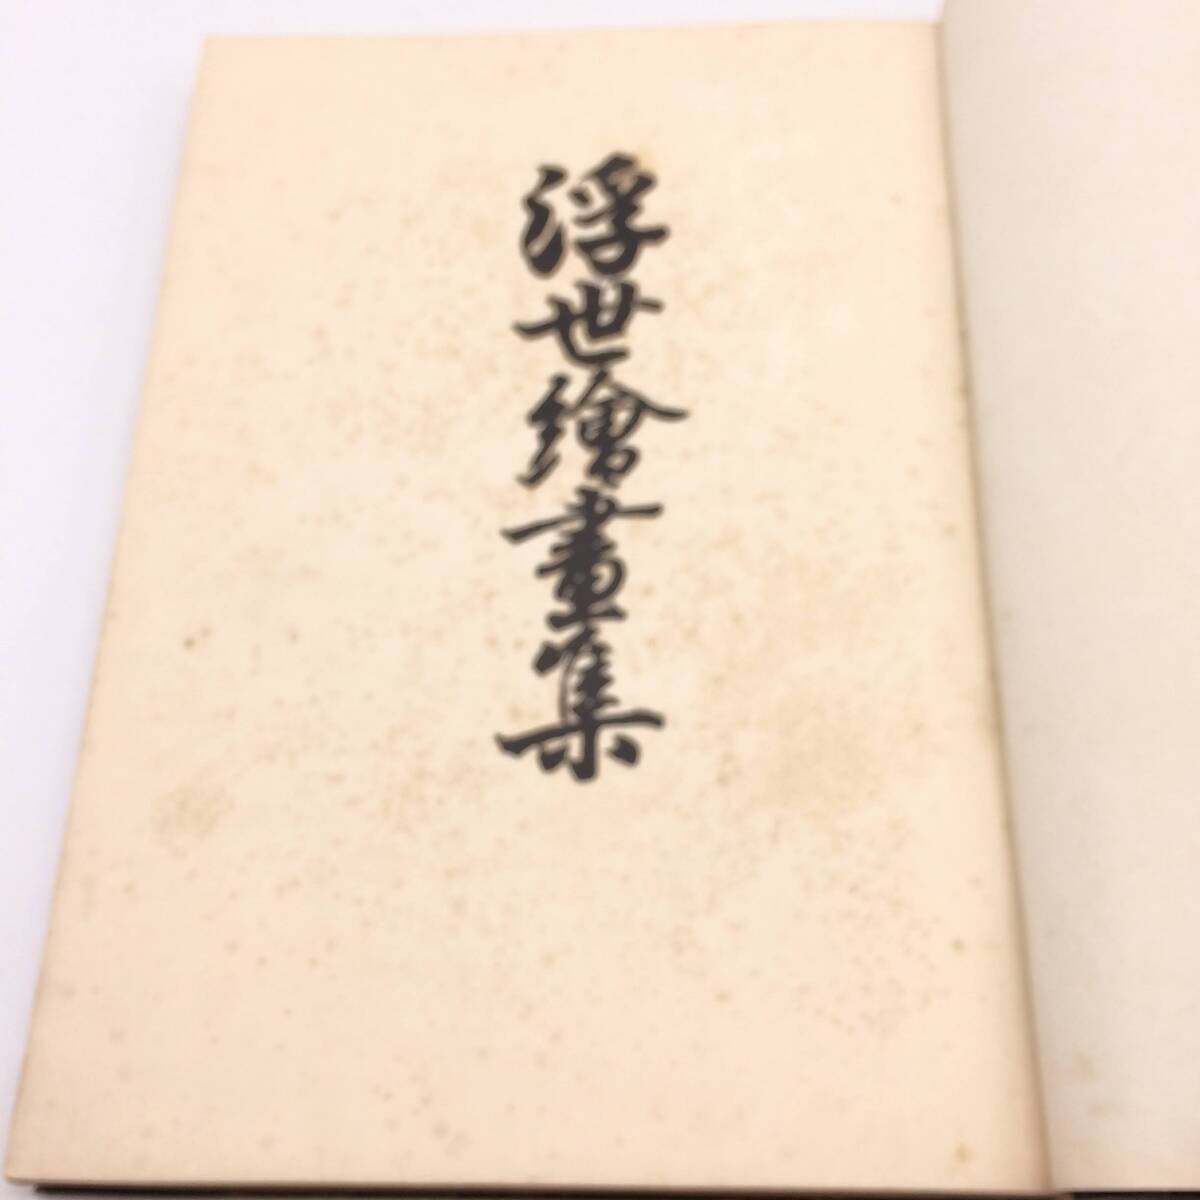 浮世繪畫集